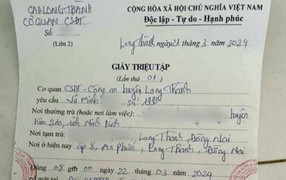 CALONG THÀNH
CƠ QUAN CSĐT
Số:
(Liên 2)
CỘNG HÒA XÃ HỘI CHỦ NGHĨA VIỆT NAM
Độc lập - Tự do - Hạnh phúc
Long Thành, ngày 21 tháng 3 năm 2024
GIẤY TRIỆU TẬP
(Lần thứ 01)
Cơ quan CSĐT - Công an huyện Long Thành
yêu cầu Vũ Minh
Nơi thường trú (hoặc nơi đang huyện
Kim Sơn, tỉnh Ninh Bình
Nơi tạm trú: Long Thành, Đồng Nai
Nơi ở hiện nay ấp 8, An Phước, Long Thành, Đồng Nai
Đúng 08 giờ 00 ngày 22 tháng 03 năm 2024